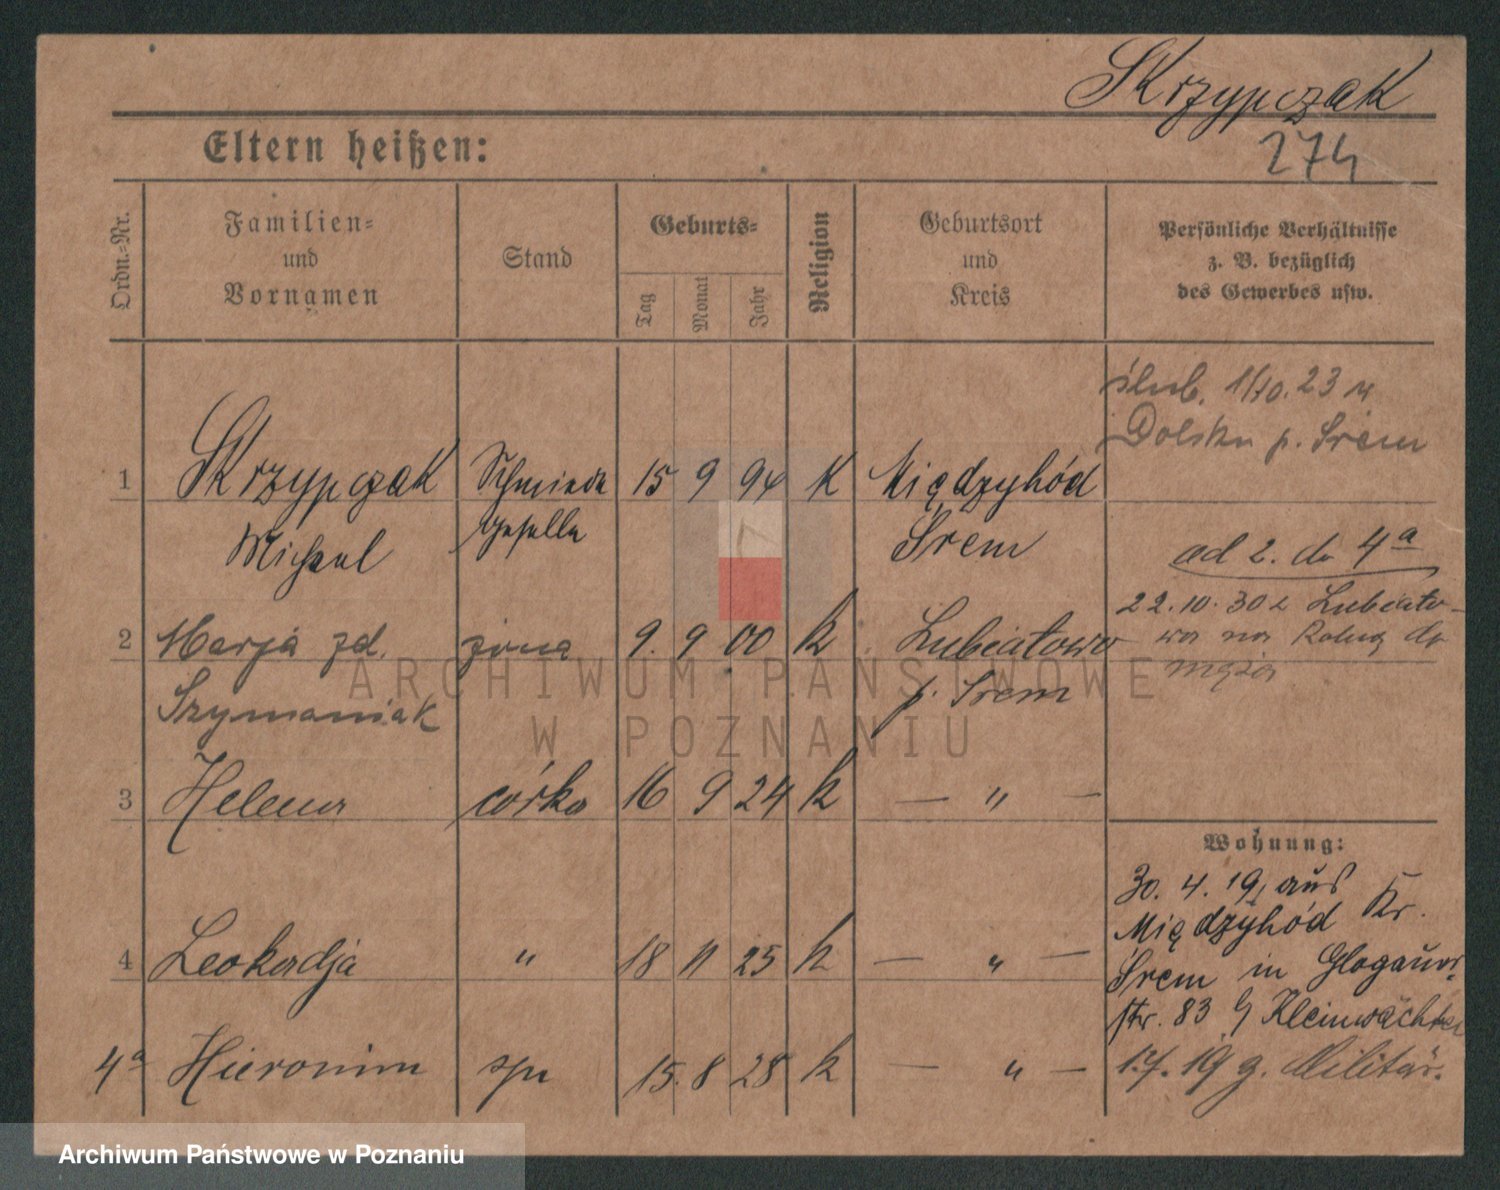 Skrzypczak
274
Eltern heißen:
Ordn.-Nr.
Familien-
und
Vornamen
Stand
Geburts-
Tag
Monat
Jahr
Religion
Geburtsort
und
Kreis
Persönliche Verhältnisse
z. B. bezüglich
des Gewerbes usw.
ślub. 1/10.23 w
Dolsku p. Śrem
1 Skrzypczak Schmiede 15 9 94 K Międzyhód
Michael geselle Śrem
ad 2. do 4a
22.10.30 z Lubiato-
wa na Rolną do
męża
2 Marja zd. żona 9. 9 00 k Lubiatowo
Szymaniak p. Śrem
3 Helena córka 16 9 24 k — " —
Wohnung:
30. 4. 19, aus
Międzyhód Kr.
Śrem in Glogauer-
str. 83 b/ Kleinwächter
1.7.19 z. Militär.
4 Leokadja " 18 11 25 k — " —
4a Hieronim syn 15. 8 28 k — " —
ARCHIWUM PAŃSTWOWE
W POZNANIU
Archiwum Państwowe w Poznaniu